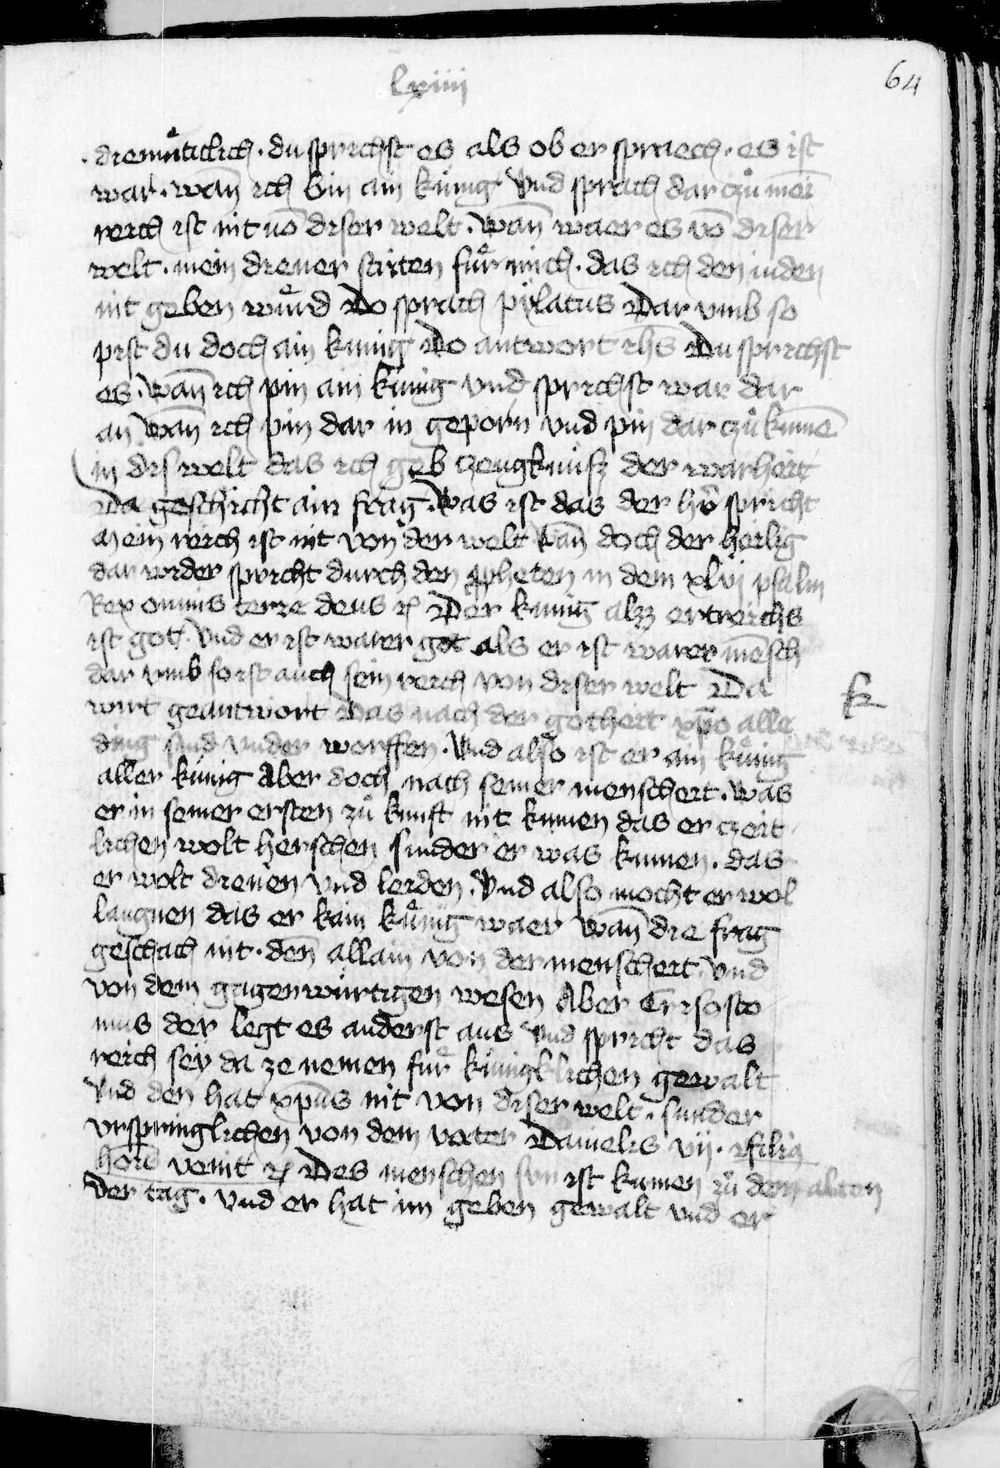 lxiiii
64
diemuͤticlich · du sprichst es als ob er spraech · es ist
war · wan̄ ich bin ain künig Vnd sprach dar czuͦ mein
reich ist nit vō diser welt · wan̄ waer es vō diser
welt · mein diener striten fuͤr mich · das ich den iuden
nit geben wuͤrd Do sprach pilatus Dar vmb so
pist du doch ain kunig Do antwort ihs̄ Du sprichst
es · wan̄ ich pin ain künig vnd sprichst war dar
an wan̄ ich pin dar in geporn vnd pin dar czuͦ kumē
in dis welt das ich geb czeugknusz der warheit
Da geschicht ain frag · was ist das der hr̄ spricht
Mein reich ist nit von der welt wan̄ doch der heilig
dar wider spricht durch den ꝓpheten in dem xlvj psalm
Rex omnis terre deus ꝛc Der kunig alz ertreichs
ist got · Vnd er ist warer got als er ist warer mēsch
dar vmb so ist auch sein reich von diser welt Da
k
wirt geantwort das nach der gothert xp̄o alle
ding sind vnder worffen · Vnd also ist er ain kuͤnig
aller künig Aber doch nach seiner menschert · was
er in seiner ersten zuͦ kunft nit kumen das er czeit
lichen wolt herschen sunder er was kumen · das
er wolt dienen vnd leiden · Vnd also mocht er wol
laugnen das er kain kuͤnig waer wan̄ die frag
geschach nit · den̄ allain von der menschert Vnd
von dem gagenwürtigen wesen Aber Crisosto
mus der legt es anderst aus vnd spricht das
reich sey da ze nemen fuͤr künigklichen gewalt
Vnd den hat xp̄us nit von diser welt · sunder
vrspringlichen von dem vater Danielis vij · filiꝰ
hoīs venit ꝛc Des menschen sun ist kumen zuͦ dem alten
der tag · Vnd er hat im geben gewalt vnd er